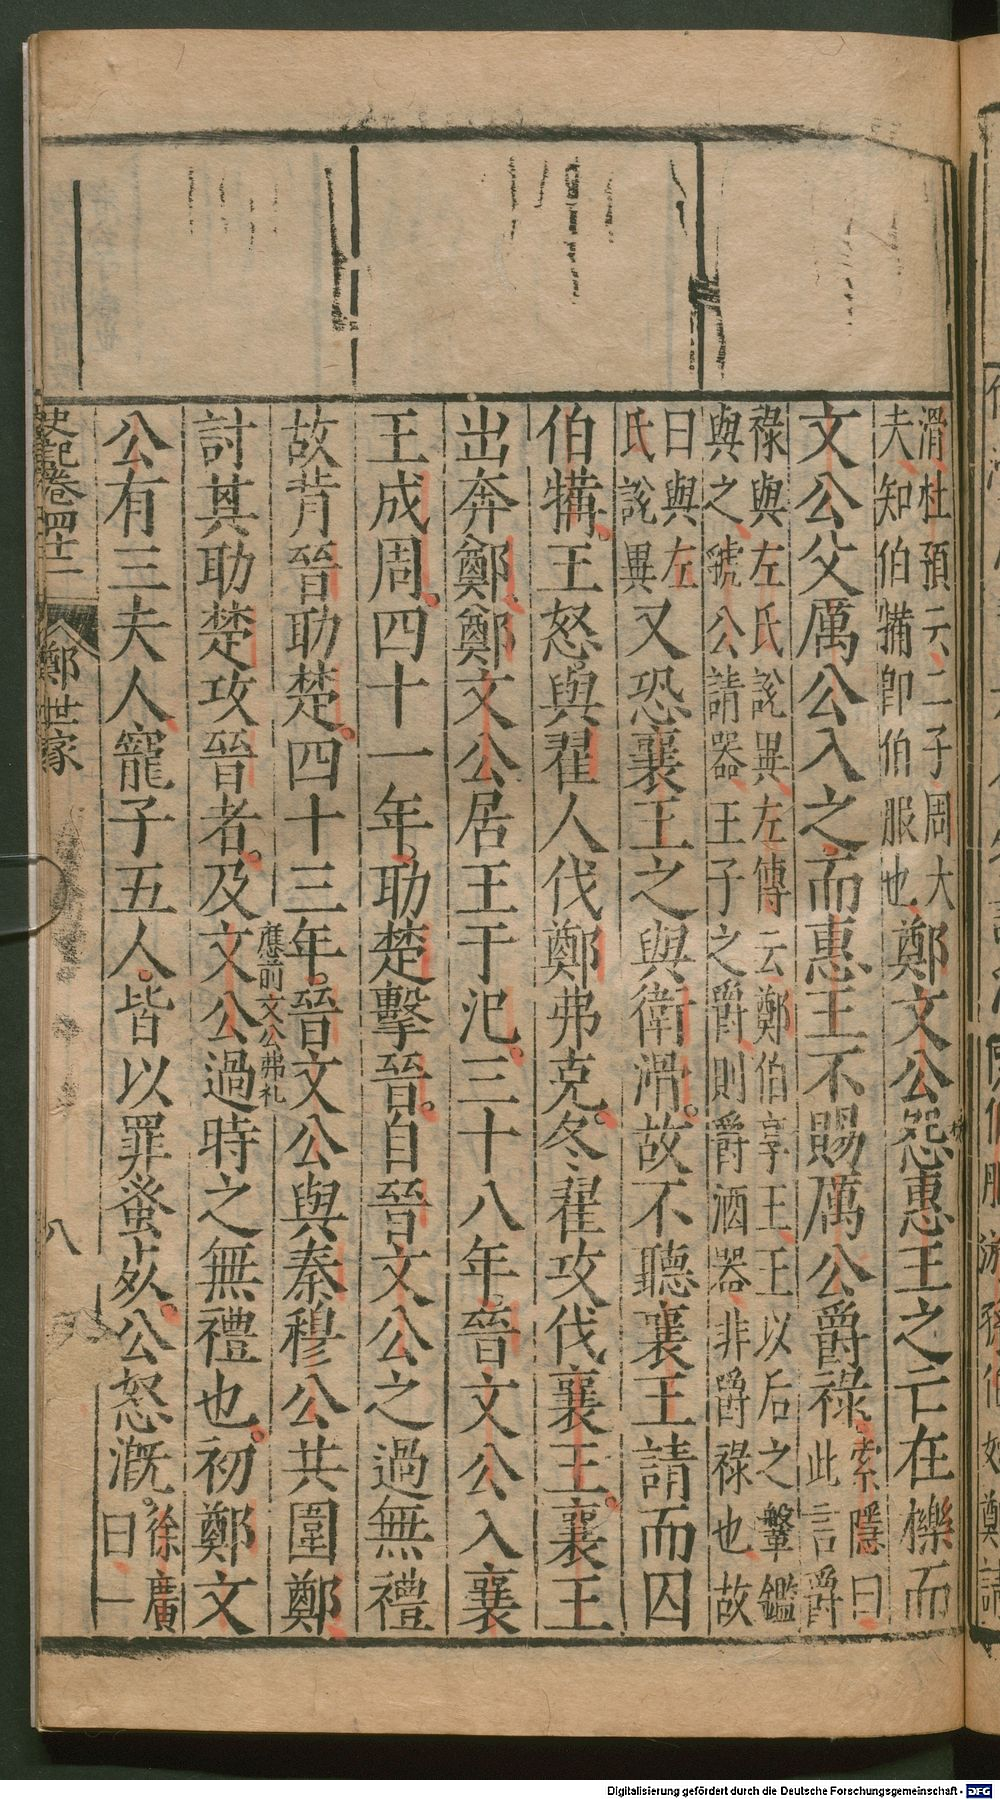 滑杜預云二子周大
夫知伯犕卽伯服也鄭文公怨惠王之亡在櫟而
文公父厲公入之而惠王不賜厲公爵祿索隱曰
此言爵
祿與左氏說異左傳云鄭伯享王王以后之鞶鑑
與之虢公請器王子之爵則爵酒器非爵祿也故
曰與左
氏說異又恐襄王之與衛滑故不聽襄王請而囚
伯犕王怒與翟人伐鄭弗克冬翟攻伐襄王襄王
出奔鄭鄭文公居王于氾三十八年晉文公入襄
王成周四十一年助楚擊晉自晉文公之過無禮
故背晉助楚四十三年晉文公與秦穆公共圍鄭
應前文公弗礼
討其助楚攻晉者及文公過時之無禮也初鄭文
公有三夫人寵子五人皆以罪蚤死公怒溉徐廣
曰一
史記卷四十二
鄭世家
八
Digitalisierung gefördert durch die Deutsche Forschungsgemeinschaft - DFG